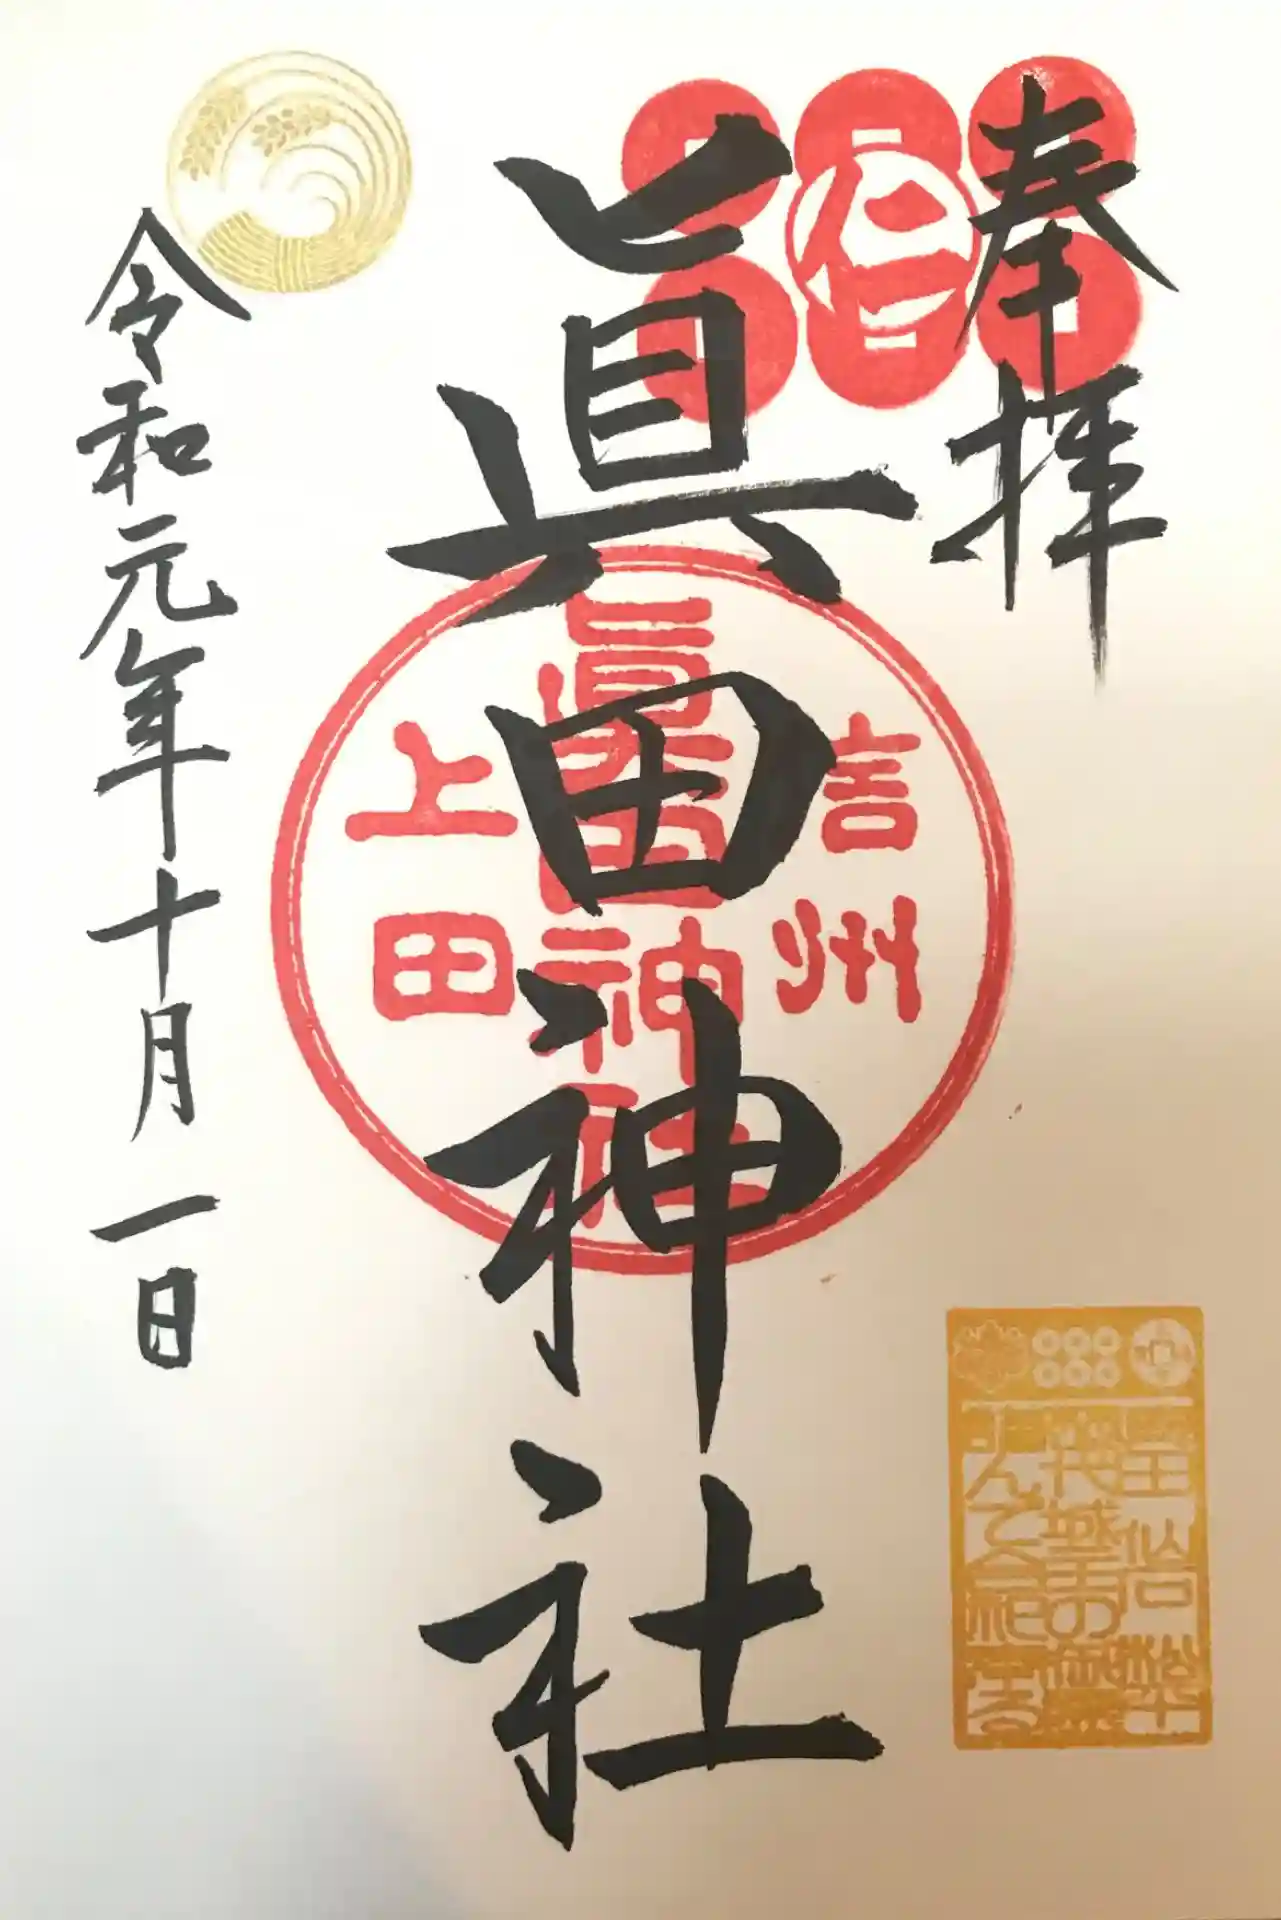 奉拝
仁
眞田神社
信州
眞田神社
上田
令和元年十月一日